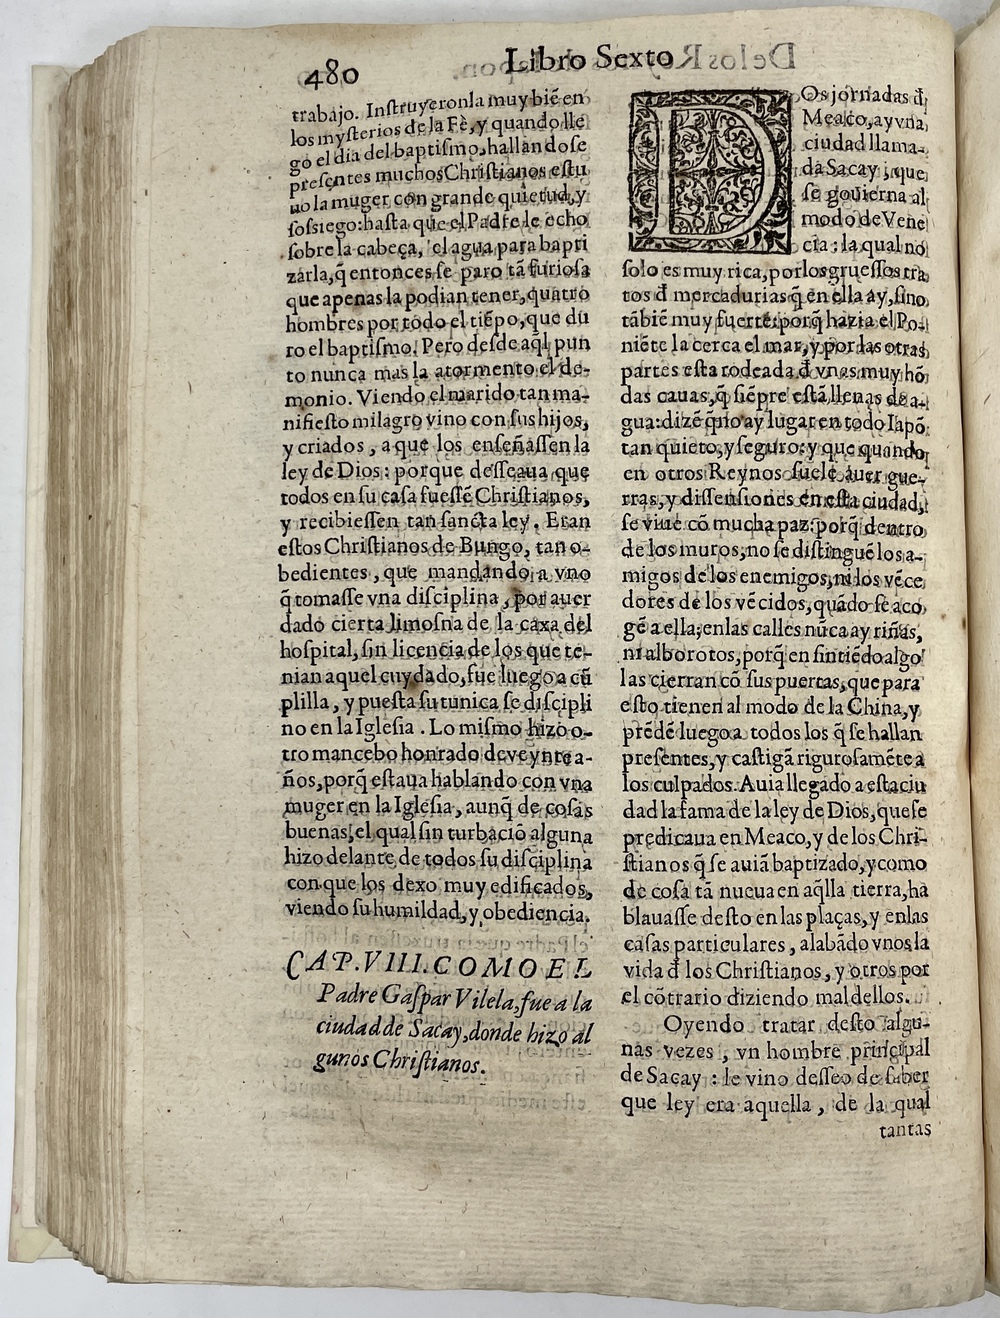 480
Libro Sexto
trabajo. Inſtruyeronla muy biē en
los myſterios de la Fè, y quando lle
gó el dia del baptiſmo, hallandoſe
preſentes muchos Chriſtianos eſtu
uo la muger con grande quietud, y
ſoſsiego: haſta que el Padre le echo
ſobre la cabeça, el agua para bapti
zarla, q̃ entonces ſe paro tā furioſa
que apenas la podian tener, quatro
hombres por todo el tiẽpo, que du
ro el baptiſmo. Pero deſde aq̃l pun
to nunca mas la atormento el de-
monio. Viendo el marido tan ma-
nifieſto milagro vino con ſus hijos,
y criados, a que los enſeñaſſen la
ley de Dios: porque deſſeaua que
todos en ſu caſa fueſſẽ Chriſtianos,
y recibieſſen tan ſancta ley. Eran
eſtos Chriſtianos de Bungo, tan o-
bedientes, que mandando a vno
q̃ tomaſſe vna diſciplina, por auer
dado cierta limoſna de la caxa del
hoſpital, ſin licencia de los que te-
nian aquel cuydado, fue luego a cũ
plilla, y pueſta ſu tunica ſe diſcipli
no en la Igleſia. Lo miſmo hizo o-
tro mancebo honrado de veynte a-
ños, porq̃ eſtaua hablando con vna
muger en la Igleſia, aunq̃ de coſas
buenas, el qual ſin turbaciō alguna
hizo delante de todos ſu diſciplina
con que los dexo muy edificados,
viendo ſu humildad, y obediencia.
CAP. VIII. COMO EL
Padre Gaſpar Vilela, fue a la
ciudad de Sacay, donde hizo al
gunos Chriſtianos.
DOs jornadas đ
Meaco, ay vna
ciudad llama-
da Sacay, que
ſe gouierna al
modo de Vene
cia: la qual no
ſolo es muy rica, por los grueſſos tra
tos đ mercadurias q̃ en ella ay, ſino
tābiē muy fuerte: porq̃ hazia el Po-
niẽte la cerca el mar, y por las otras
partes eſta rodeada đ vnas muy hō
das cauas, q̃ ſiẽpre eſtā llenas de a-
gua: dizẽ q̃ no ay lugar en todo Iapō
tan quieto, y ſeguro: y que quando
en otros Reynos ſuelẽ auer gue-
rras, y diſſenſiones en eſta ciudad,
ſe viue cō mucha paz: porq̃ dentro
de los muros, no ſe diſtinguẽ los a-
migos de los enemigos, ni los vẽce
dores de los vẽcidos, quādo ſe aco
gẽ a ella; en las calles nũca ay riñas,
ni alborotos, porq̃ en ſintiẽdo algo
las cierran cō ſus puertas, que para
eſto tienen al modo de la China, y
prẽdẽ luego a todos los q̃ ſe hallan
preſentes, y caſtigā riguroſamẽte a
los culpados. Auia llegado a eſta ciu
dad la fama de la ley de Dios, que ſe
predicaua en Meaco, y de los Chri-
ſtianos q̃ ſe auiā baptizado, y como
de coſa tā nueua en aq̃lla tierra, ha
blauaſſe deſto en las plaças, y en las
caſas particulares, alabādo vnos la
vida đ los Chriſtianos, y otros por
el cōtrario diziendo mal dellos.
Oyendo tratar deſto algu-
nas vezes, vn hombre principal
de Sacay: le vino deſſeo de ſaber
que ley era aquella, de la qual
tantas